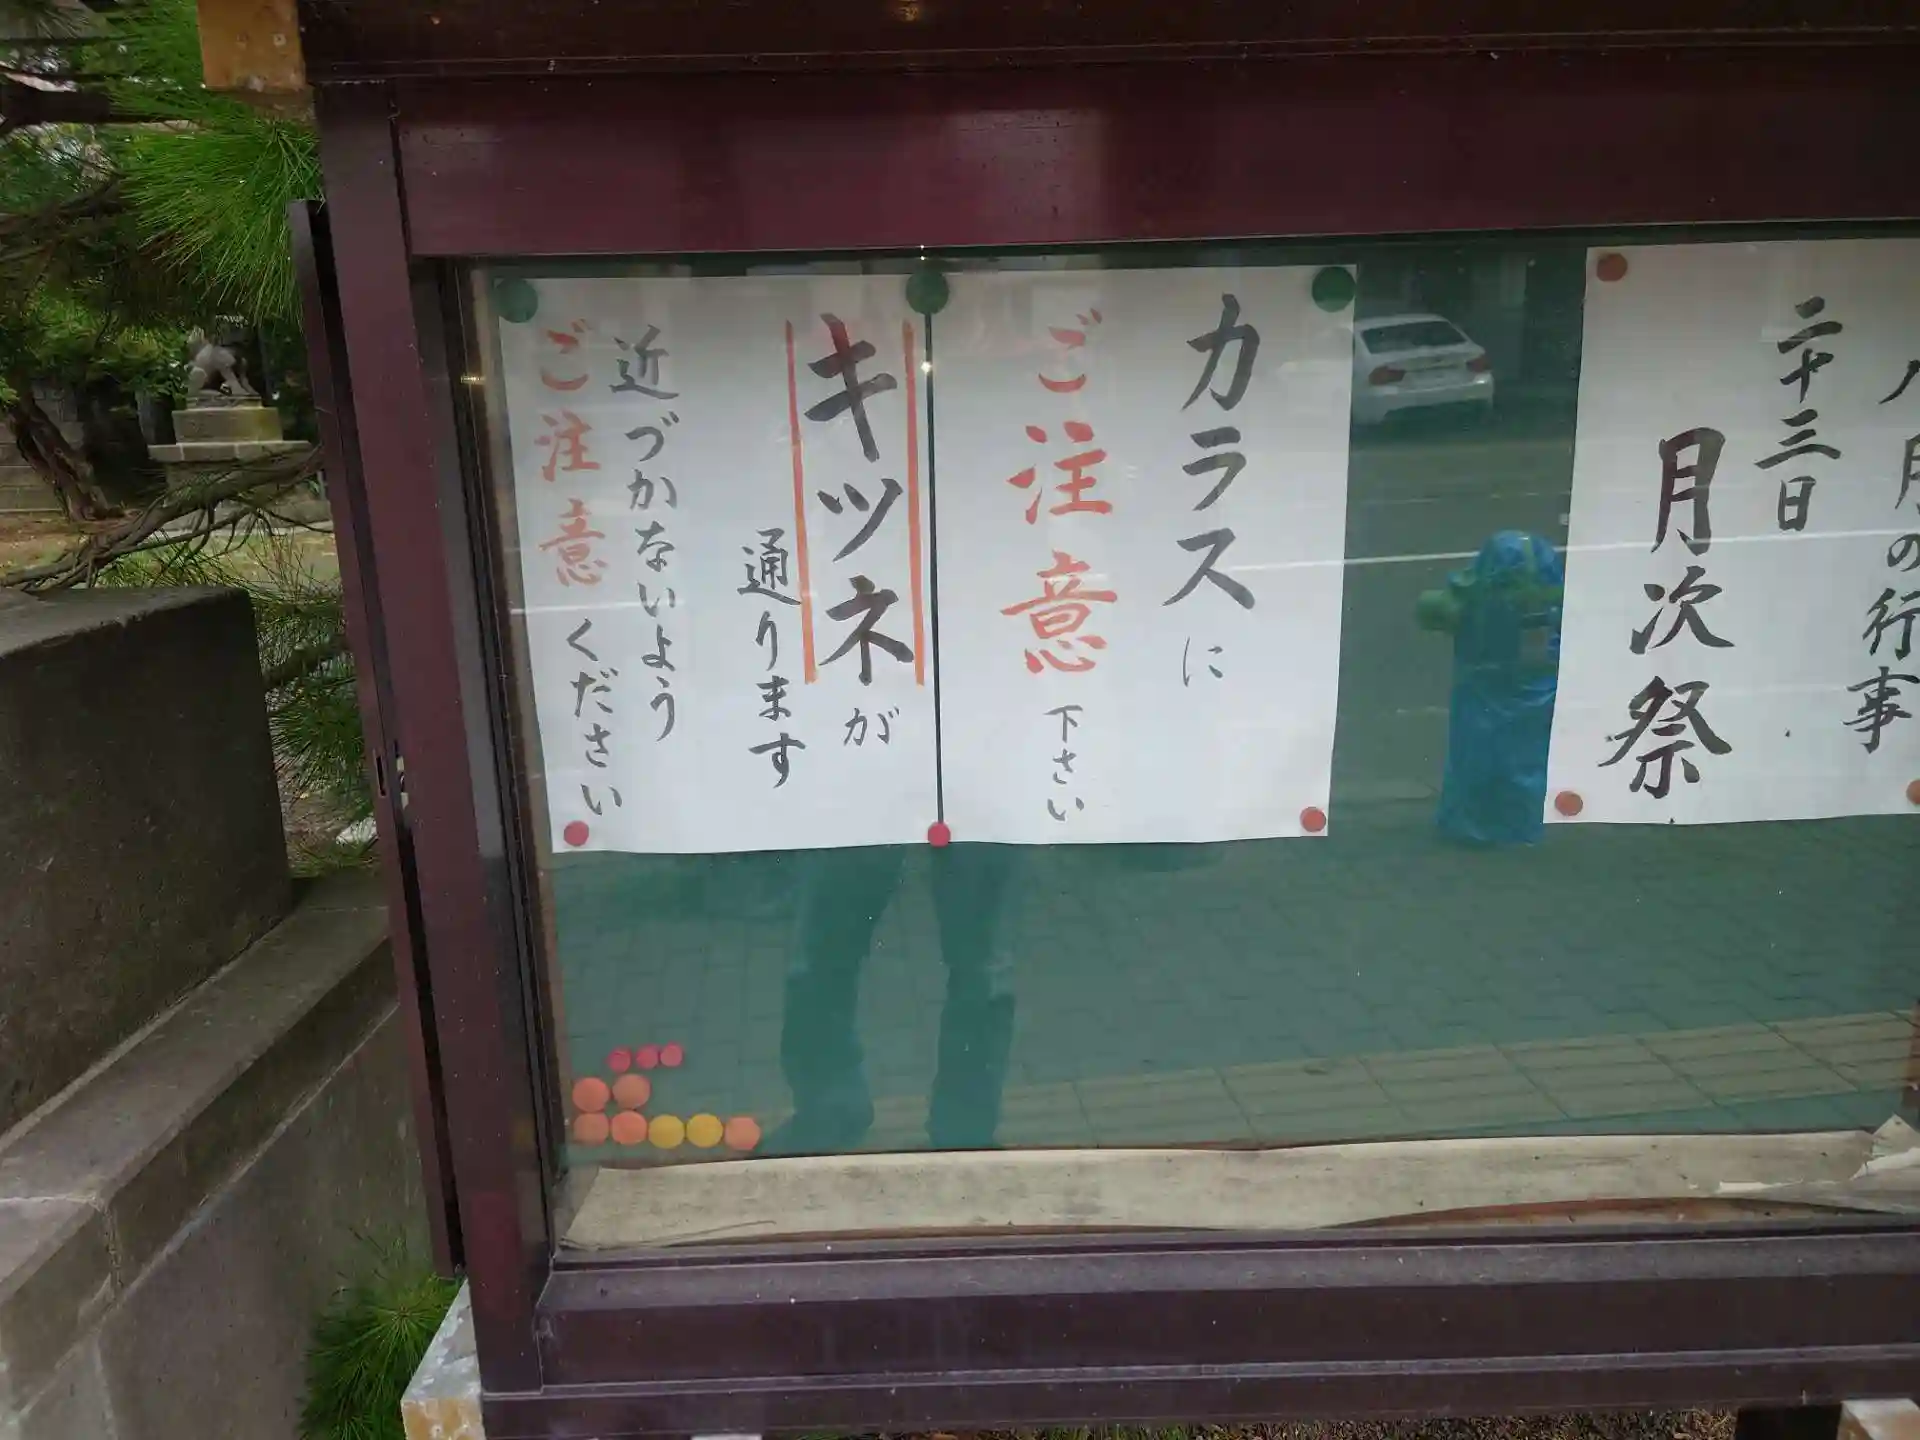 八月の行事
二十三日
月次祭
カラスに
ご注意下さい
キツネが
通ります
近づかないよう
ご注意ください